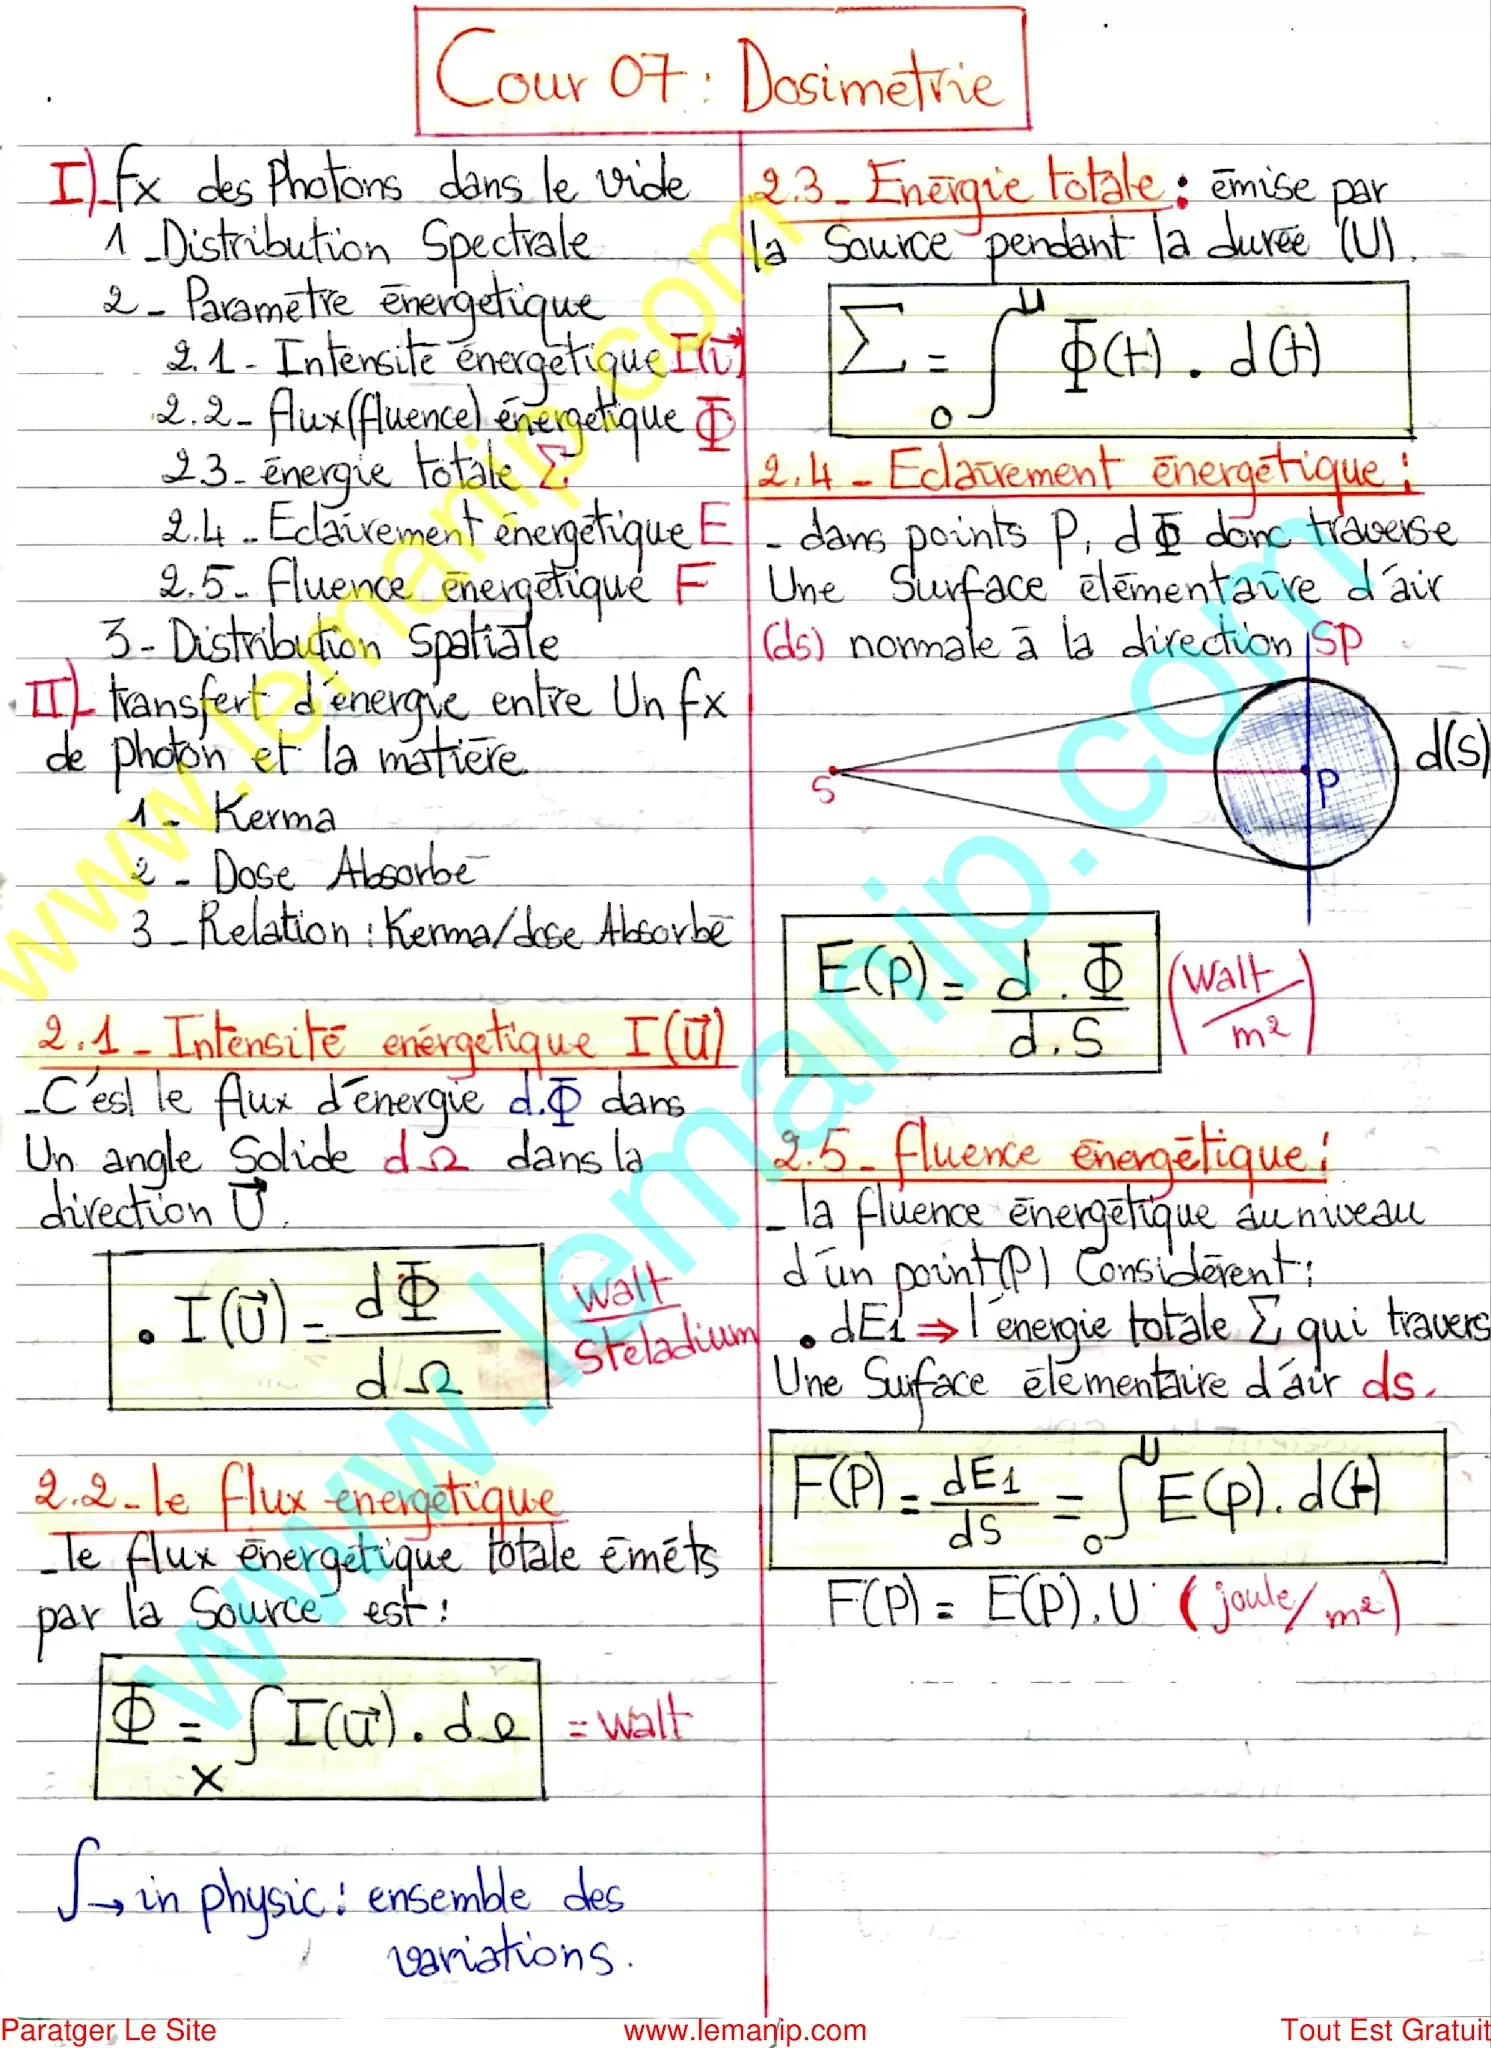 Cour 07 : Dosimetrie
I)_ fx des Photons dans le vide
1_Distribution Spectrale
2_ Parametre énergetique
2.1- Intensite énergetique I(u⃗)
2.2- flux(fluence) énergetique Φ
23- énergie totale Σ
2.4- Eclairement énergetique E
2.5- fluence énergetique F
3- Distribution Spatiale
II)- transfert d'énergie entre Un fx
de photon et la matiere.
1- Kerma
2 - Dose Absorbé
3 - Relation : Kerma/dose Absorbé
2.1 - Intensité enérgetique I(u⃗)
-C'est le flux d'énergie d.Φ dans
Un angle Solide dΩ dans la
direction U⃗.
• I(u⃗) = dΦ / dΩ
walt / steladium
2.2- le flux energetique
-le flux énergetique totale éméts
par la Source est :
Φ = ∫x I(u⃗) . dΩ = walt
∫→ in physic : ensemble des
variations.
2.3_ Energie totale : émise par
la Source pendant la durée (U).
Σ = ∫₀ᵁ Φ(t) . d(t)
2.4 - Eclairement énergetique :
- dans points P, dΦ donc traverse
Une Surface élémentaire d'air
(ds) normale à la direction SP
S
P
d(S)
E(P) = d.Φ / d.S (walt / m²)
2.5- fluence énergétique :
_ la fluence énergétique au niveau
d'un point(P) Considérent :
• dE1 ⇒ l'énergie totale Σ qui travers
Une Surface élementaire d'air ds.
F(P) = dE1 / dS = ∫₀ᵁ E(p). d(t)
F(P) = E(P).U (joule/m²)
www.lemanip.com
www.lemanip.com
Paratger Le Site
www.lemanip.com
Tout Est Gratuit